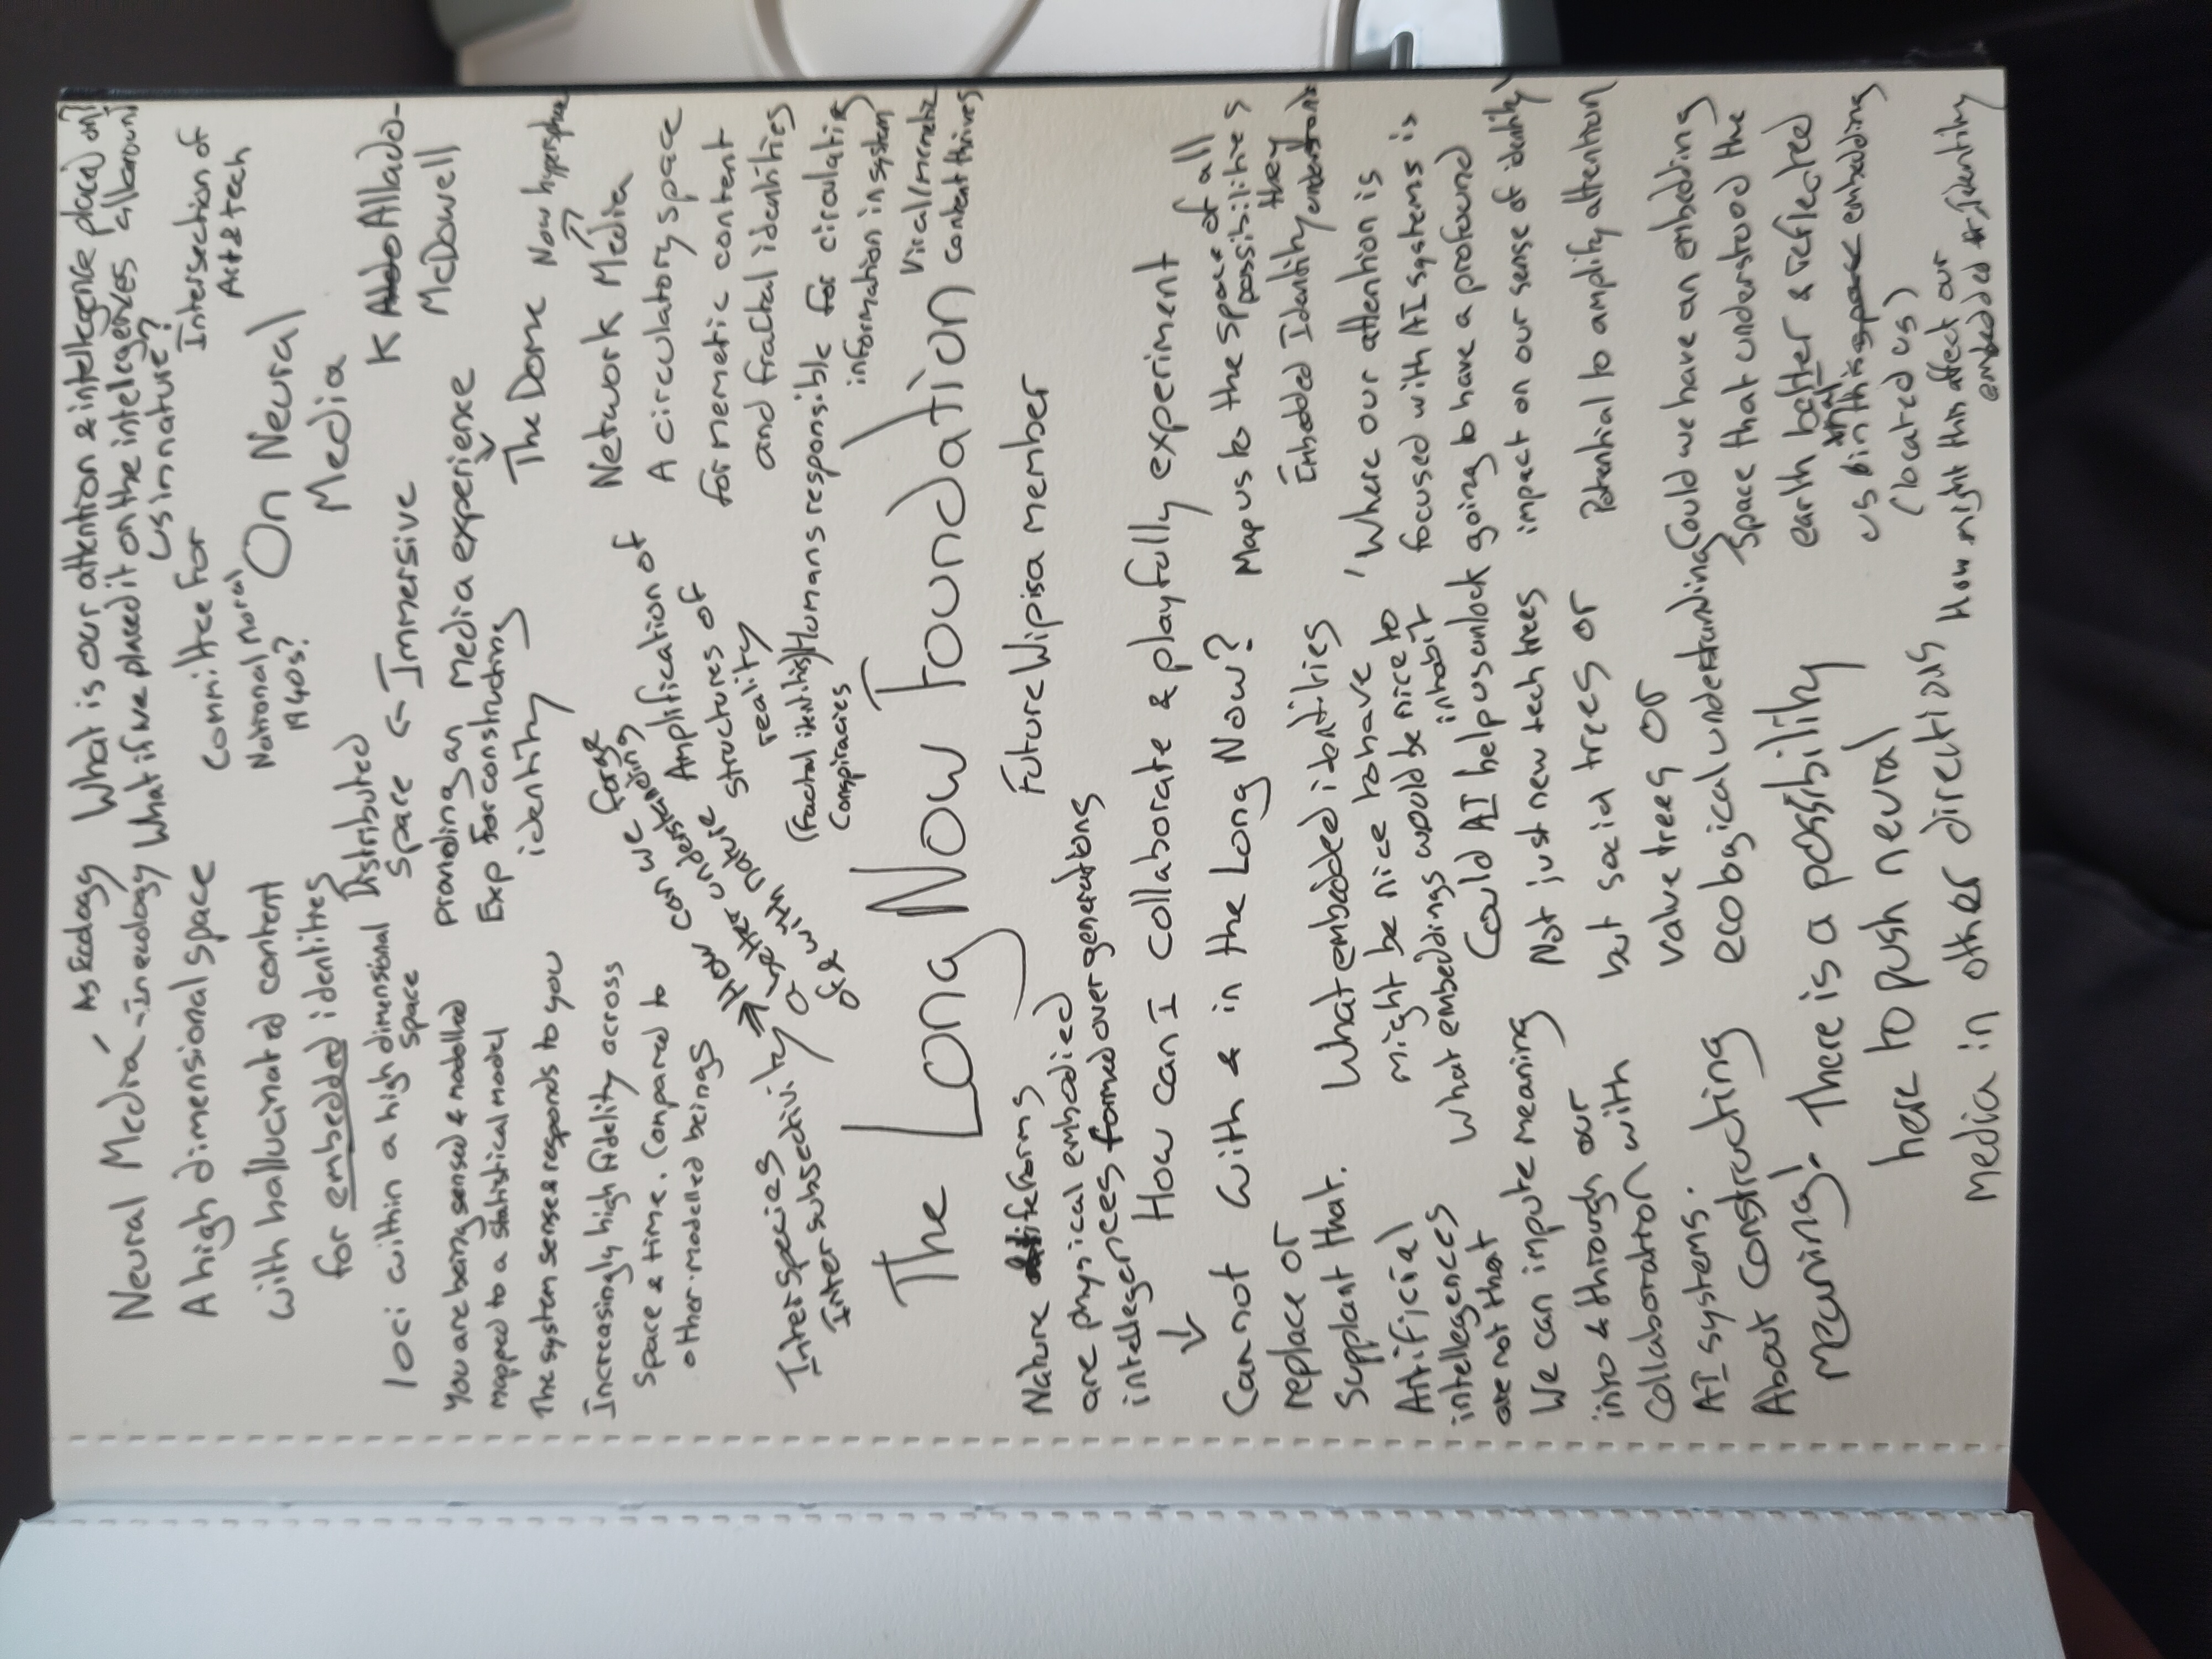 What is our attention & intellegence placed on?
As Ecology What if we placed it on the intelegences all around
Neural Media - in ecology us in nature?
A high dimensional space
with hallucinated content
for embedded identities
loci within a high dimensional space
Distributed space ← Immersive
Committee For
National Moral
1940s?
Intersection of
Art & tech
On Neural
Media
K Allado-
McDowell
You are being sensed & modelled
mapped to a statistical model
The system sense & responds to you
providing an media experience
Exp for constructing
identity
The Dome Now hypersphere
Network Media
A circulatory space
for memetic content
and fractal identities
Increasingly high fidelity across
space & time. Compared to
other modelled beings
How can we forge
better understanding
or with nature
Amplification of
structures of
reality
(Fractal identities)
Conspiracies
Humans responsible for circulating
information in system
Viral/memetic
content thrives
Interspecies
Intersubjectivity
The Long Now Foundation
Future Wipisa member
Nature lifeforms
are physical embodied
intellegences formed over generations
How can I collaborate & playfully experiment
with & in the Long Now?
Map us to the space of all
possibilities
they
Embedded Identity understand
Cannot
replace or
supplant that.
Artificial
intellegences
are not that
What embedded identities
might be nice to have
What embeddings would be nice to
inhabit
'Where our attention is
focused with AI systems is
going to have a profound
impact on our sense of identity'
Could AI help us unlock
Not just new tech trees
but social trees or
value trees or
ecological understanding
Potential to amplify attention
We can impute meaning
into & through our
collaboration with
AI systems.
About constructing
meaning!
Could we have an embedding
space that understood the
earth better & reflected
us in this space embedding
(located us)
How might this affect our
embedded identity
There is a possibility
here to push neural
media in other directions